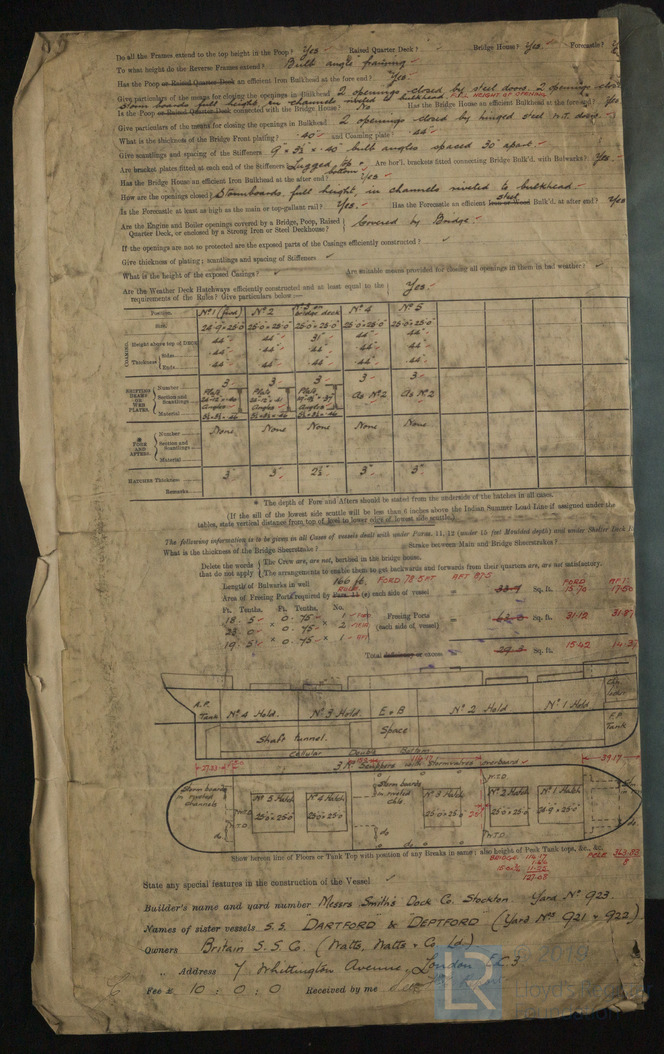 Do all the Frames extend to the top height in the Poop? Yes Raised Quarter Deck? Bridge House? Yes Forecastle?
To what height do the Reverse Frames extend? Bulb angle framing
Has the Poop or Raised Quarter Deck an efficient Iron Bulkhead at the fore end? Yes
Give particulars of the means for closing the openings in Bulkhead 2 openings closed by steel doors. 2 openings
Storm boards full height, in channels riveted to bulkhead
Is the Poop or Raised Quarter Deck connected with the Bridge House? No Has the Bridge House an efficient Bulkhead at the fore end? Yes
Give particulars of the means for closing the openings in Bulkhead 2 openings closed by hinged steel W.T. doors
What is the thickness of the Bridge Front plating? ·40" and Coaming plate? ·44"
Give scantlings and spacing of the Stiffeners 9" × 3½" × ·40" bulb angles spaced 30" apart.
Are bracket plates fitted at each end of the Stiffeners Lugged top & bottom Are hor'l. brackets fitted connecting Bridge Bulk'd. with Bulwarks? Yes
Has the Bridge House an efficient Iron Bulkhead at the after end? Yes
How are the openings closed? Stormboards, full height, in channels riveted to bulkhead.
Is the Forecastle at least as high as the main or top-gallant rail? Yes. Has the Forecastle an efficient Iron or Wood steel Bulk'd. at after end? Yes
Are the Engine and Boiler openings covered by a Bridge, Poop, Raised Quarter Deck, or enclosed by a Strong Iron or Steel Deckhouse? Covered by Bridge.
If the openings are not so protected are the exposed parts of the Casings efficiently constructed?
Give thickness of plating; scantlings and spacing of Stiffeners
What is the height of the exposed Casings? Are suitable means provided for closing all openings in them in bad weather?
Are the Weather Deck Hatchways efficiently constructed and at least equal to the requirements of the Rules? Give particulars below:— Yes
Position. Nº 1 (fwd) Nº 2 Nº 3 on bridge deck Nº 4 Nº 5
Size 24·9 × 25·0 25·0 × 25·0 25·0 × 25·0 25·0 × 25·0 25·0 × 25·0
COAMING. Height above top of DECK 44" 44" 31" 44" 44"
Thickness Sides ·44" ·44" ·44" ·44" ·44"
Ends ·44" ·44" ·44" ·44" ·44"
SHIFTING BEAMS OR WEB PLATES. Number 3 3 3 3 3
Section and Scantlings Plate Plate Plate As Nº 2 As Nº 2
Material Angles Angles Angles
* FORE AND AFTERS. Number None None None None None
Section and Scantlings
Material
HATCHES Thickness 3" 3" 2½" 3" 3"
Remarks
* The depth of Fore and Afters should be stated from the underside of the hatches in all cases.
(If the sill of the lowest side scuttle will be less than 6 inches above the Indian Summer Load Line if assigned under the
tables, state vertical distance from top of keel to lower edge of lowest side scuttle.)
The following information is to be given in all Cases of vessels dealt with under Paras. 11, 12 (under 15 feet Moulded depth) and under Shelter Deck
What is the thickness of the Bridge Sheerstrake? Strake between Main and Bridge Sheerstrakes?
Delete the words that do not apply { The Crew are, are not, berthed in the bridge house.
The arrangements to enable them to get backwards and forwards from their quarters are, are not satisfactory.
Length of Bulwarks in well 166 ft. FORD 78·5 FT AFT 87·5
Area of Freeing Ports required by Para. 11 (e) each side of vessel = 33·9 Sq. ft. FORD 15·70 AFT 17·50
Ft. Tenths. Ft. Tenths. No.
18 · 5 × 0 · 75 × 1
23 · 0 × 0 · 75 × 2
19 · 5 × 0 · 75 × 1
Freeing Ports (each side of vessel) = 63·0 Sq. ft. 31·12 31·87
Total deficiency or excess = 29·3 Sq. ft. 15·42 14·37
A.P. Tank Nº 4 Hold. Nº 3 Hold E & B Space Nº 2 Hold Nº 1 Hold F.P. Tank
Shaft tunnel.
Cellular Double Bottom
Storm boards in riveted channels Nº 5 Hatch 25·0 × 25·0 Nº 4 Hatch 25·0 × 25·0 Storm boards in riveted chls. Nº 3 Hatch 25·0 × 25·0 Nº 2 Hatch 25·0 × 25·0 Nº 1 Hatch 24·9 × 25·0
do W.T.D. do do W.T.D.
39·17
Show hereon line of Floors or Tank Top with position of any Breaks in same; also height of Peak Tank tops, &c., &c.
BRIDGE 114·17
127·05
State any special features in the construction of the Vessel
Builder's name and yard number Messrs Smith's Dock Co. Stockton Yard Nº 923.
Names of sister vessels S.S. DARTFORD & DEPTFORD (Yard Nºs 921 & 922)
Owners Britain S.S. Co. (Watts, Watts & Co Ld)
" Address 7 Whittington Avenue, London E.C.3
Fee £ 10 : 0 : 0 Received by me
© 2019
Lloyd's Register
Foundation
LR